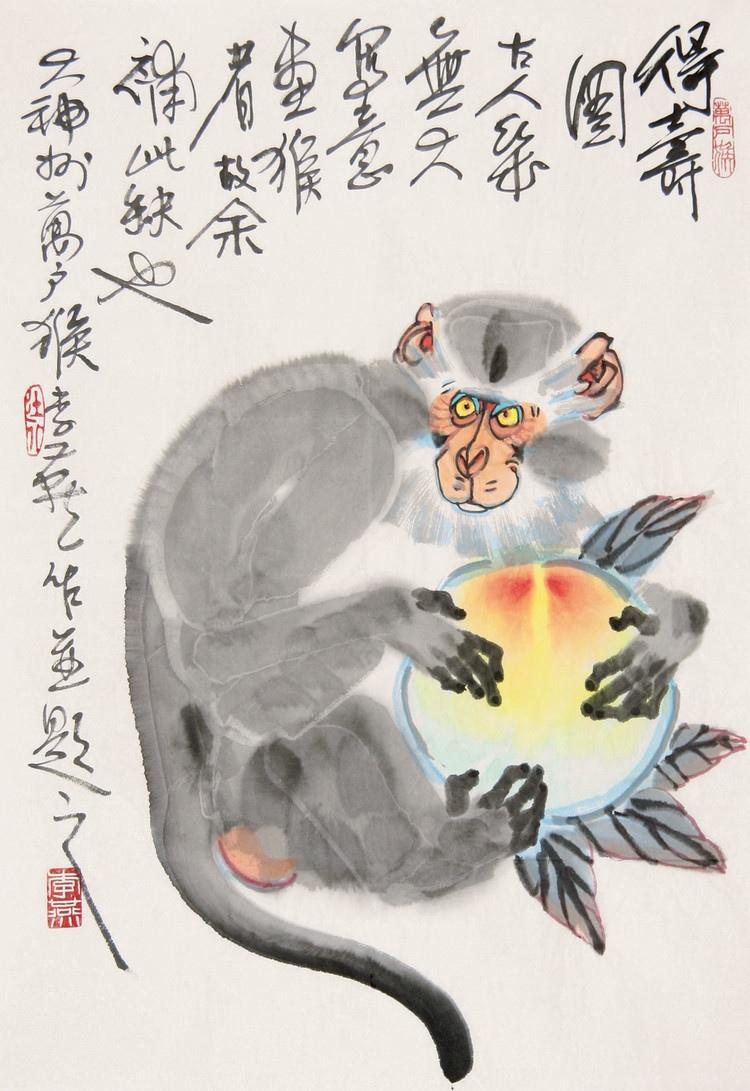 萬戶猴
得壽
圖
古人幾
無大
寫意
畫猴
者故余
補此缺也
大神州萬戶猴李燕作並題之
李燕